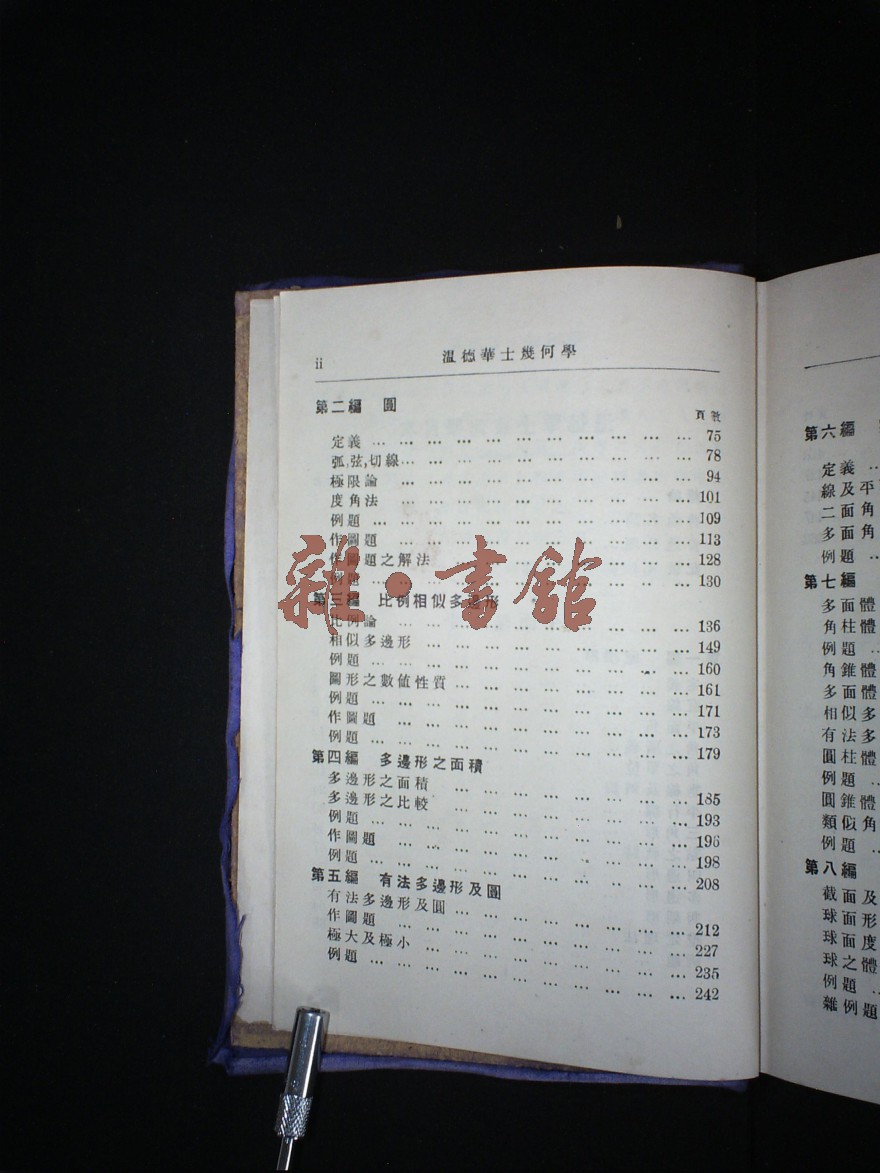 ii
温德華士幾何學
第二編 圓
頁數
定義 … … … … … … … … … … … … 75
弧,弦,切線… … … … … … … … … … … 78
極限論 … … … … … … … … … … … 94
度角法 … … … … … … … … … … … 101
例題 … … … … … … … … … … … … 109
作圖題 … … … … … … … … … … … 113
作圖題之解法 … … … … … … … … … … 128
例題 … … … … … … … … … … … … 130
第三編 比例相似多邊形
比例論 … … … … … … … … … … … 136
相似多邊形 … … … … … … … … … … 149
例題 … … … … … … … … … … … … 160
圖形之數値性質 … … … … … … … … … 161
例題 … … … … … … … … … … … … 171
作圖題 … … … … … … … … … … … 173
例題 … … … … … … … … … … … … 179
第四編 多邊形之面積
多邊形之面積 … … … … … … … … … … 185
多邊形之比較 … … … … … … … … … 193
例題 … … … … … … … … … … … … 196
作圖題 … … … … … … … … … … … 198
例題 … … … … … … … … … … … … 208
第五編 有法多邊形及圓
有法多邊形及圓 … … … … … … … … … 212
作圖題 … … … … … … … … … … … 227
極大及極小 … … … … … … … … … … 235
例題 … … … … … … … … … … … … 242
雜·書館
第六編
定義 …
線及平
二面角
多面角
例題 …
第七編
多面體
角柱體
例題 …
角錐體
多面體
相似多
有法多
圓柱體
例題 …
圓錐體
類似角
例題 …
第八編
截面及
球面形
球面度
球之體
例題 …
雜例題